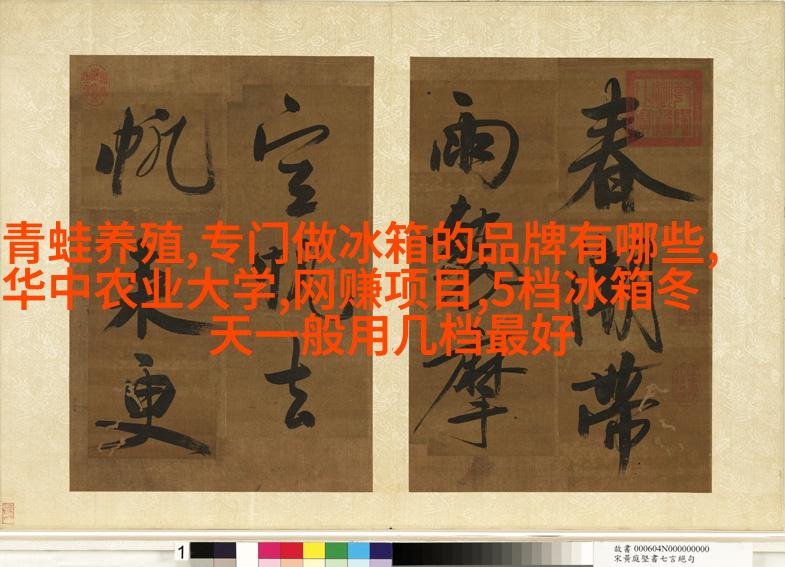 春湖帶
雨 摩
空 去
帆來更
青蛙养殖,专门做冰箱的品牌有哪些,
华中农业大学,网赚项目,5档冰箱冬
天一般用几档最好
1
故書 000604N000000000
宋黃庭堅書七言絕句